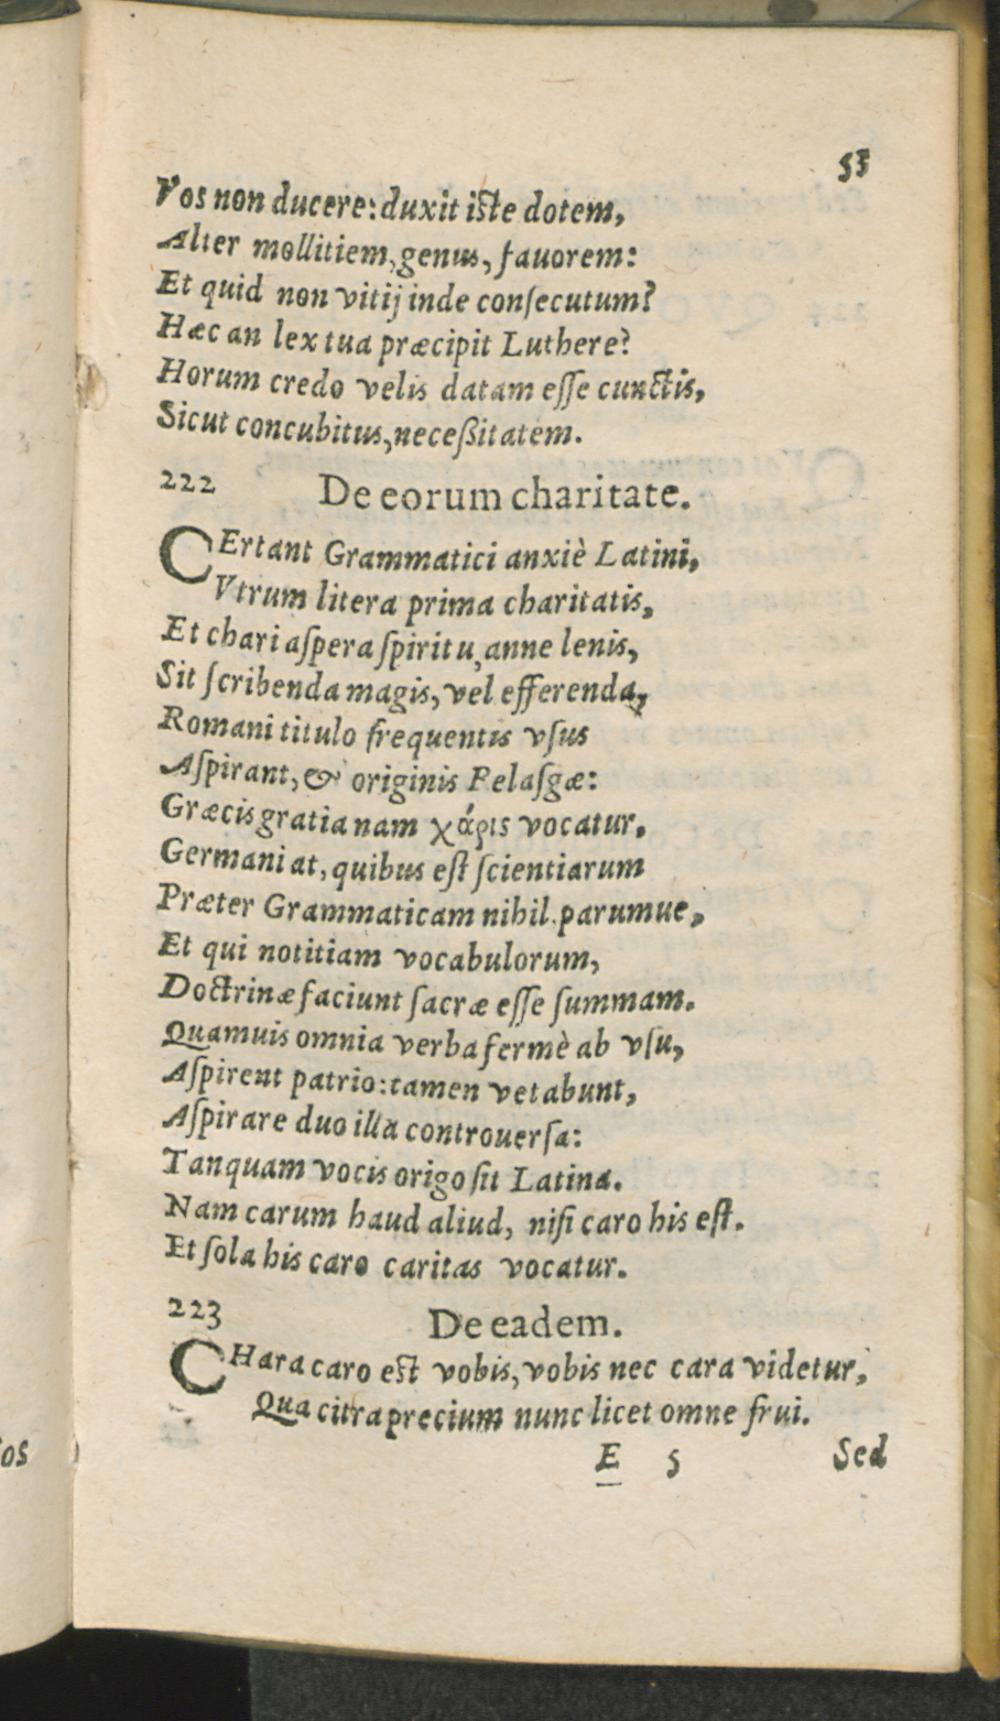 53
Vos non ducere: duxit iste dotem,
Alter mollitiem, genus, fauorem:
Et quid non vitij inde conſecutum?
Hæc an lex tua præcipit Luthere?
Horum credo velis datam eſſe cunctis,
Sicut concubitus, neceßitatem.
222 De eorum charitate.
CErtant Grammatici anxiè Latini,
Vtrum litera prima charitatis,
Et chari aſpera ſpiritu, anne lenis,
Sit ſcribenda magis, vel efferenda,
Romani titulo frequentis vſus
Aſpirant, & originis Pelaſgæ:
Græcis gratia nam χάρις vocatur.
Germani at, quibus eſt ſcientiarum
Præter Grammaticam nihil. parumue,
Et qui notitiam vocabulorum,
Doctrinæ faciunt ſacræ eſſe ſummam.
Quamuis omnia verba fermè ab vſu,
Aſpirent patrio: tamen vetabunt,
Aſpirare duo illa controuerſa:
Tanquam vocis origo ſit Latina.
Nam carum haud aliud, niſi caro his eſt.
Et ſola his caro caritas vocatur.
223 De eadem.
CHara caro est vobis, vobis nec cara videtur,
Qua citra precium nunc licet omne frui.
E 5 Sed
os